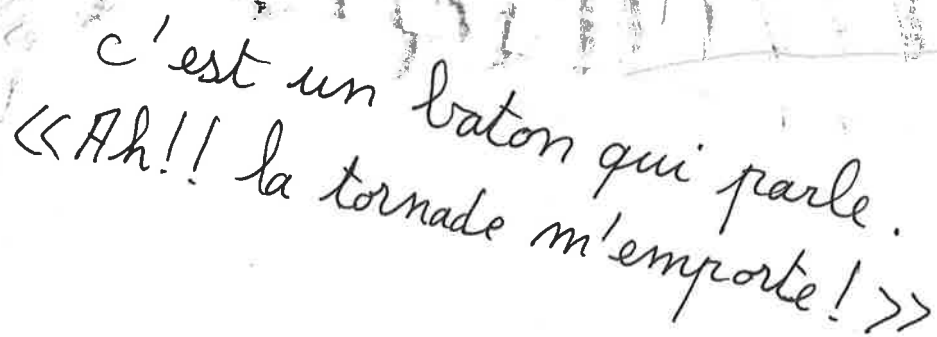 c'est un baton qui parle.
<<Ah!! la tornade m'emporte!>>